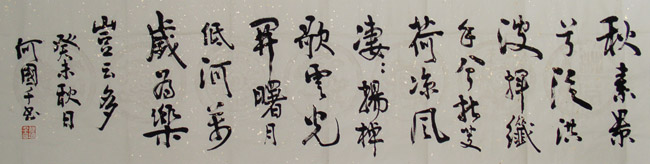 秋素景
兮泛洪
波揮纖
手兮折芰
荷涼風
淒々揚棹
歌雲光
開曙月
低河萬
歲為樂
豈云多
癸未秋日
何國千书